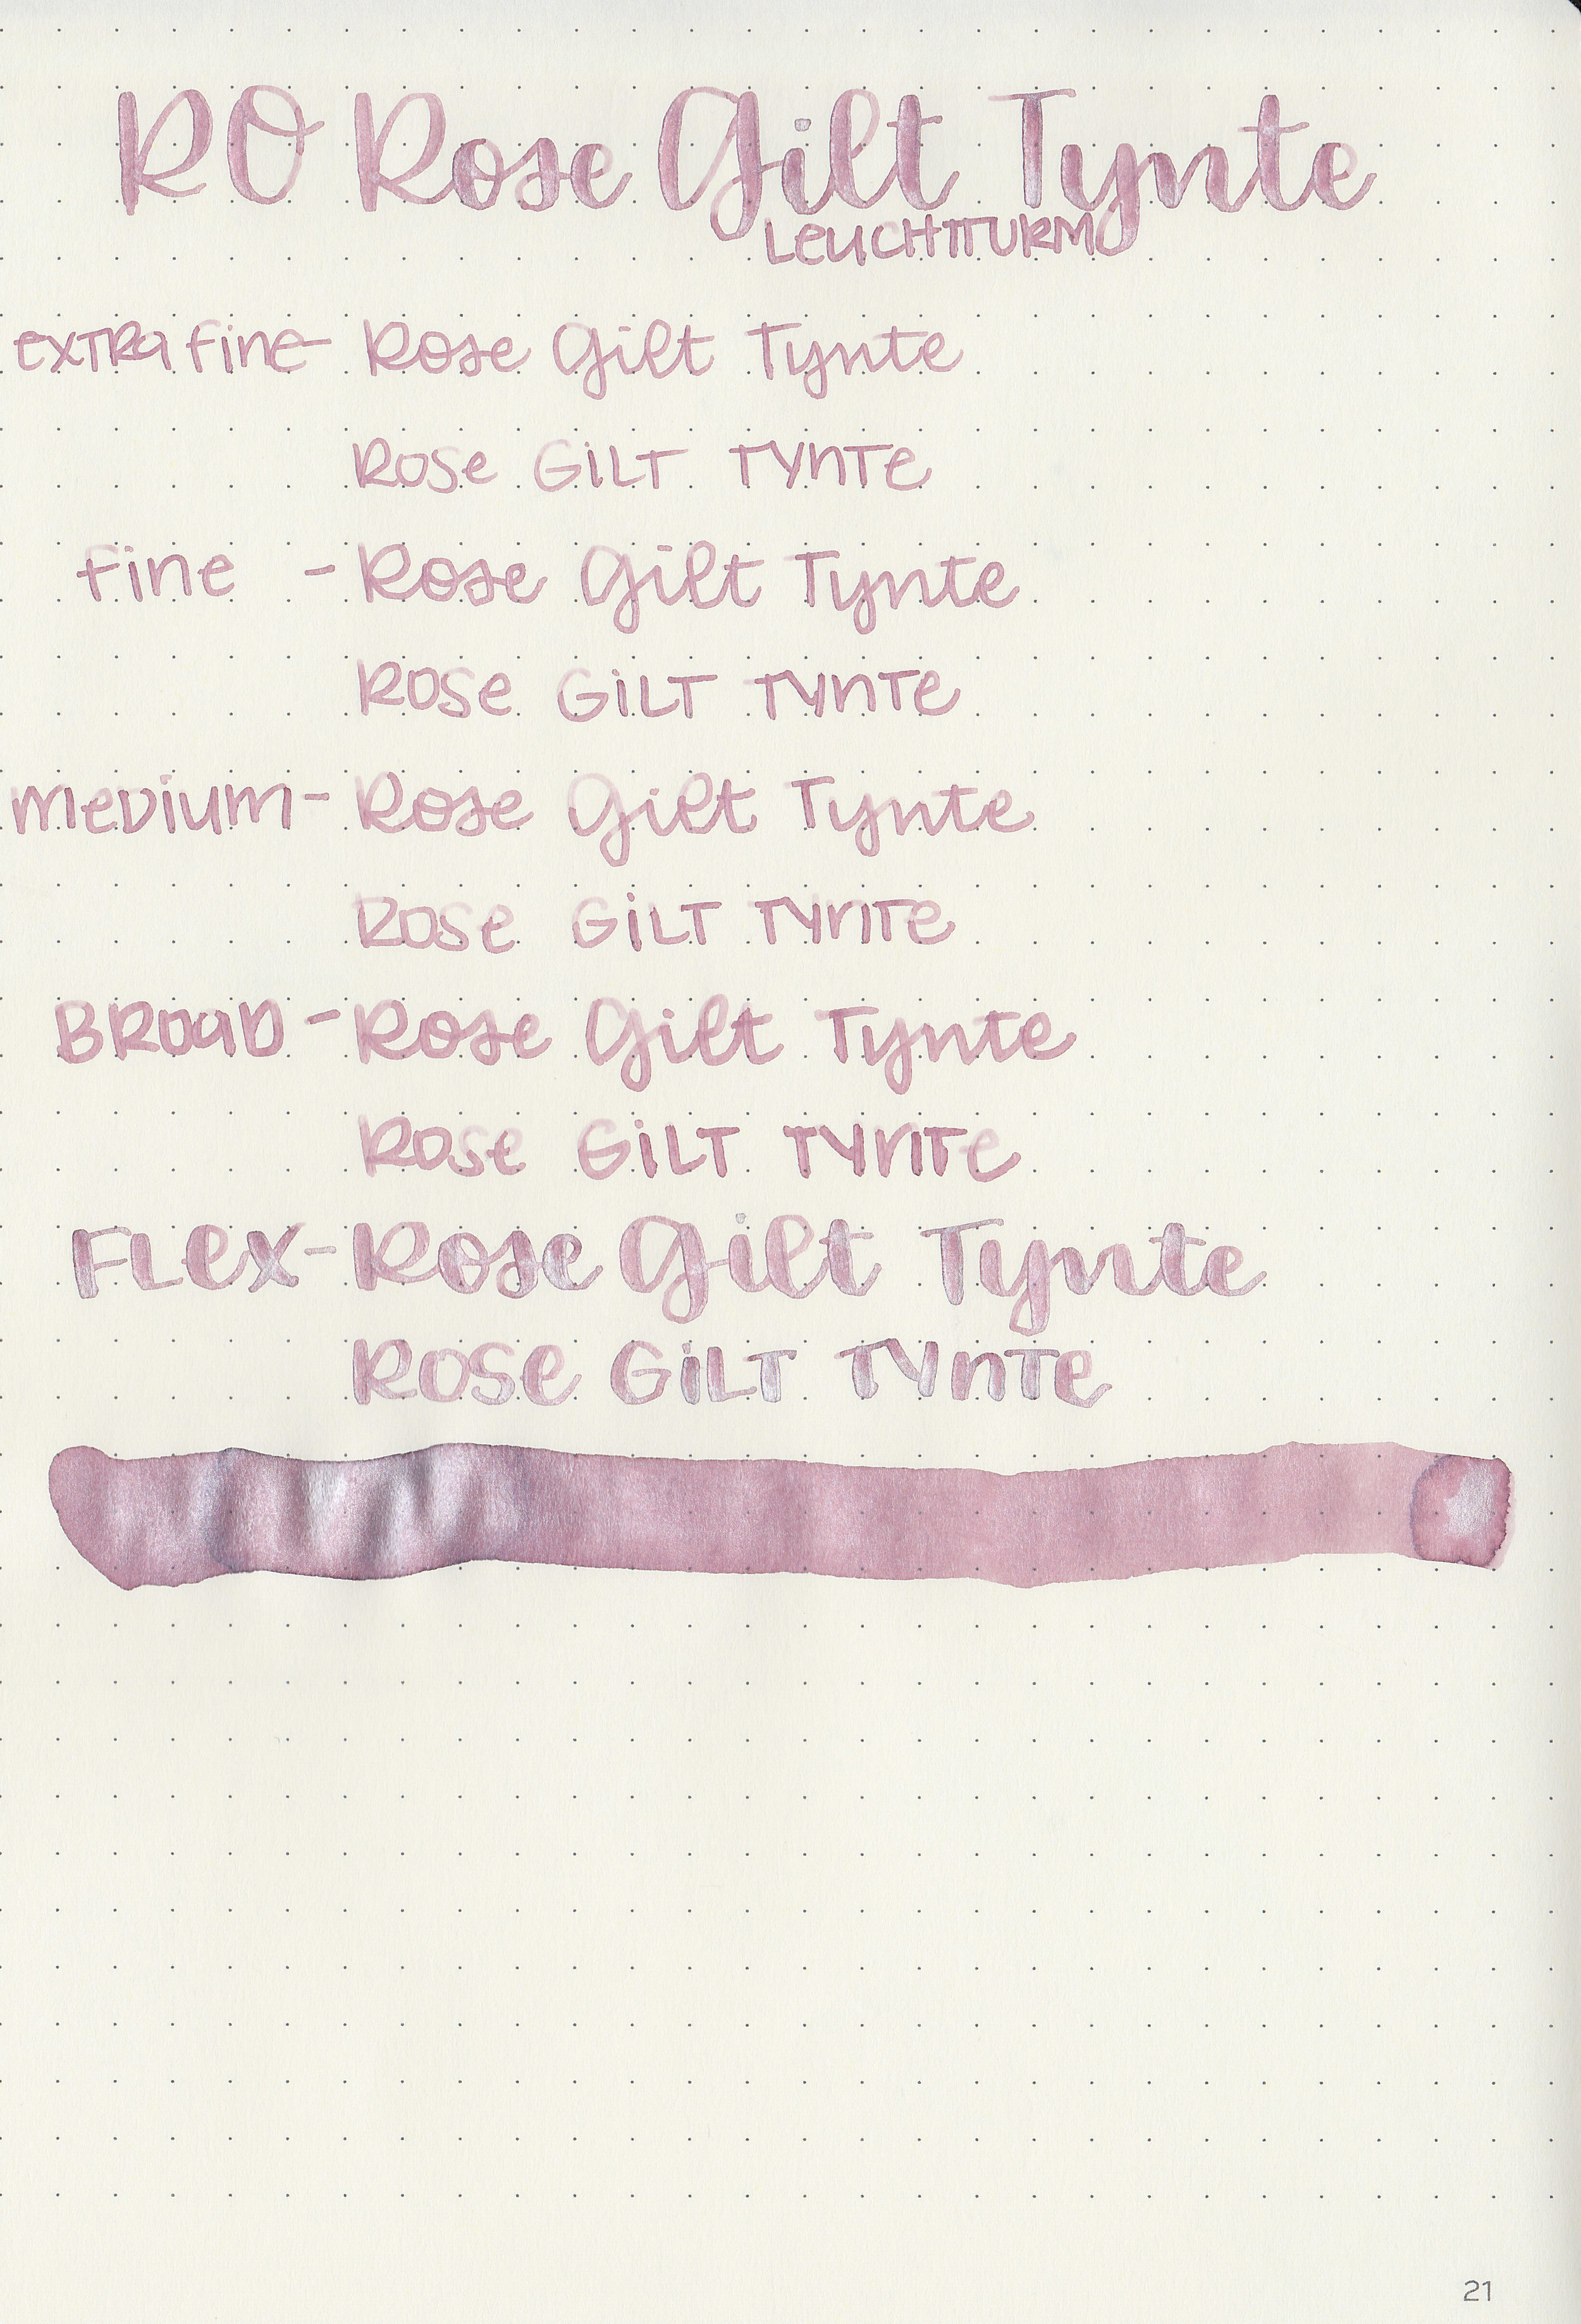 RO Rose Gilt Tynte
LEUCHTTURM
EXTRA Fine- Rose Gilt Tynte
ROSe GiLT TYnTe
Fine - Rose Gilt Tynte
ROSe GiLT TYnTe
MeDiUM- Rose Gilt Tynte
ROSe GiLT TYnTe
BROaD - Rose Gilt Tynte
ROSe GiLT TYnTe
FLex- Rose Gilt Tynte
ROSe GiLT TYnTe
21